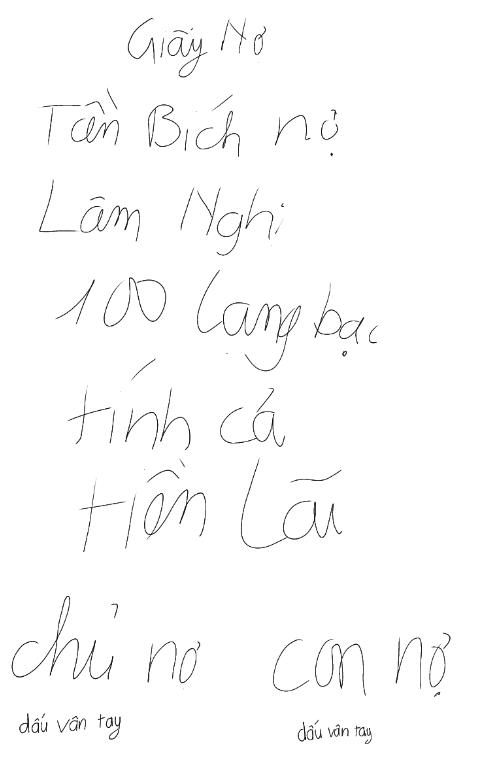 Giấy Nơ
Tần Bích nợ
Lâm Nghi
100 lạng bạc
tính cả
tiền lãi
chủ nơ con nợ
dấu vân tay dấu vân tay